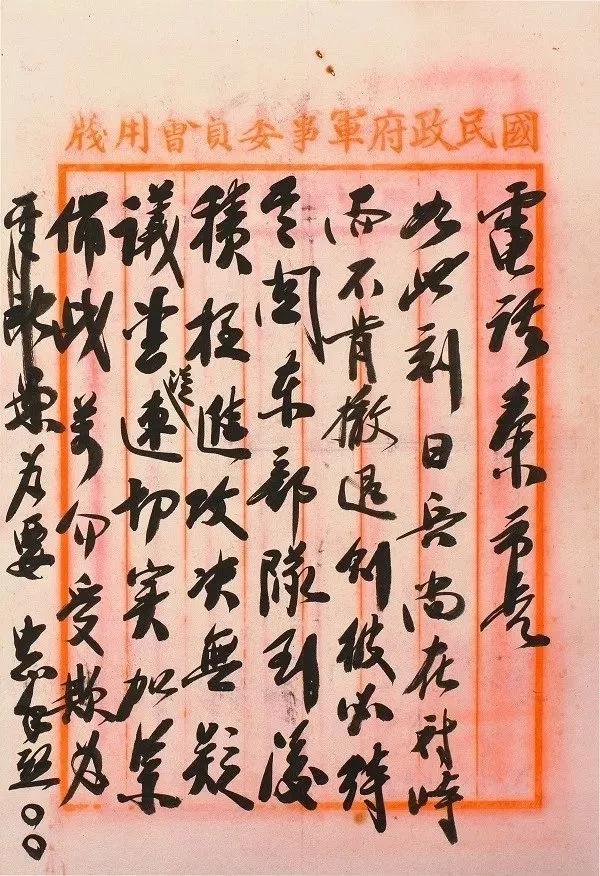 國民政府軍事委員會用牋
電話秦市長
如此刻日兵尚在對峙
而不肯撤退則彼必待
其關東部隊到後
積極進攻決無疑
議望從速切實加緊
備戰萬勿受欺為
為要
○○